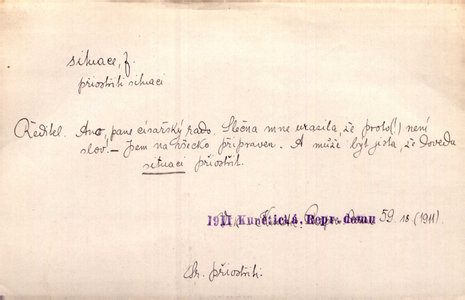 situace, f.
přiostřiti situaci
Ředitel. Ano, pane císařský rado. Slečna mne urazila, že proto(!) není
slov! – Jsem na všecko připraven. A může být jista, že dovedu
situaci přiostřit.
1911 Kunětická, Repr. domu 59. 18 (1911)
Sr. přiostřiti.